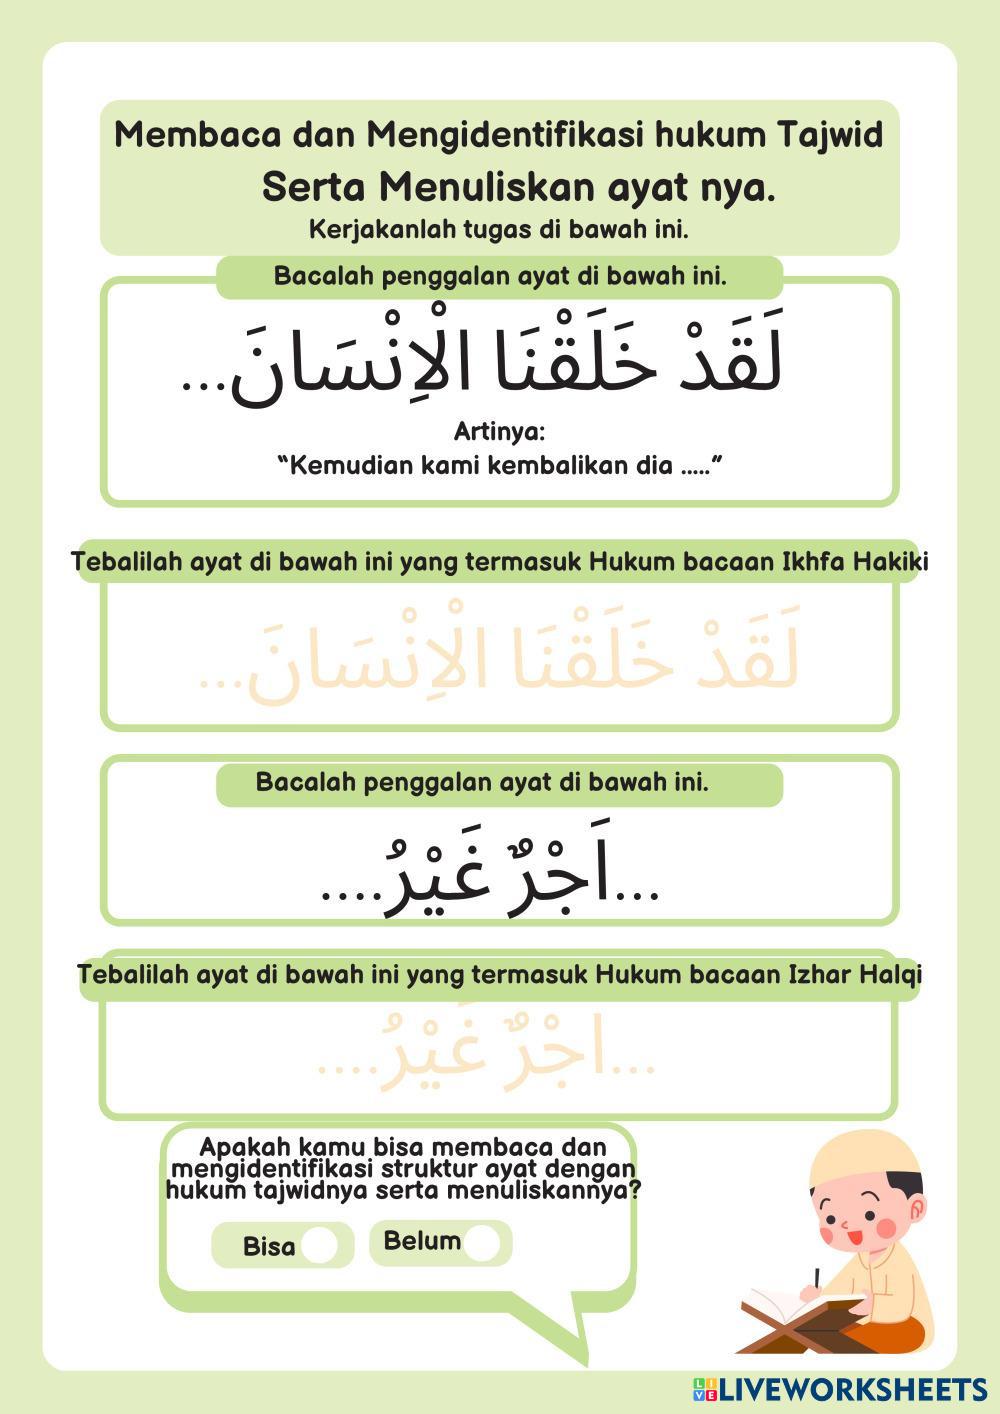 Membaca dan Mengidentifikasi hukum Tajwid
Serta Menuliskan ayat nya.
Kerjakanlah tugas di bawah ini.
Bacalah penggalan ayat di bawah ini.
لَقَدْ خَلَقْنَا الْاِنْسَانَ...
Artinya:
“Kemudian kami kembalikan dia .....”
Tebalilah ayat di bawah ini yang termasuk Hukum bacaan Ikhfa Hakiki
لَقَدْ خَلَقْنَا الْاِنْسَانَ...
Bacalah penggalan ayat di bawah ini.
...اَجْرٌ غَيْرُ....
Tebalilah ayat di bawah ini yang termasuk Hukum bacaan Izhar Halqi
...اجْرٌ غَيْرُ....
Apakah kamu bisa membaca dan
mengidentifikasi struktur ayat dengan
hukum tajwidnya serta menuliskannya?
Bisa
Belum
LIVEWORKSHEETS